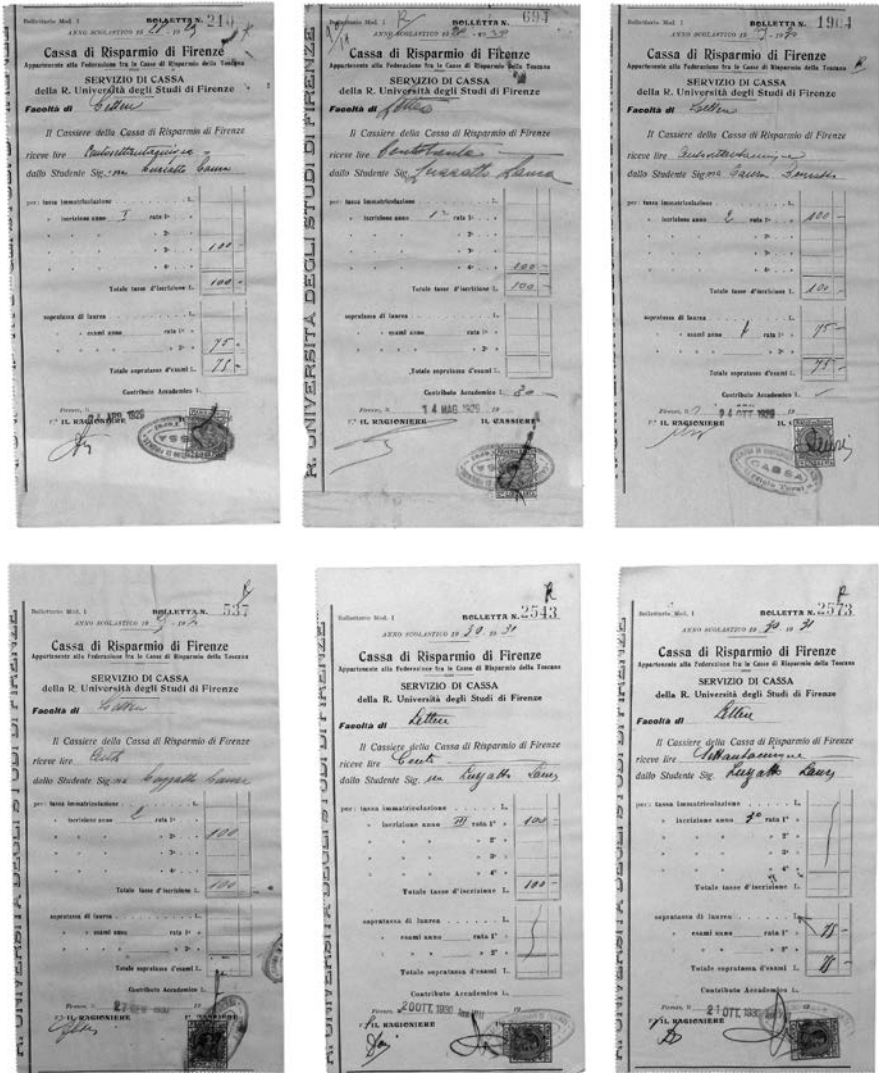 Bollettario Mod. 1 BOLLETTA N. 240
ANNO SCOLASTICO 19 28 - 19 29
Cassa di Risparmio di Firenze
Appartenente alla Federazione fra le Casse di Risparmio della Toscana
SERVIZIO DI CASSA
della R. Università degli Studi di Firenze
Facoltà di Lettere
Il Cassiere della Cassa di Risparmio di Firenze
riceve lire Centosettantacinque
dallo Studente Sig.na Luzzatto Laura
per: tassa immatricolazione L.
" iscrizione anno I rata 1ª "
" " " " 2ª "
" " " " 3ª " 100 -
" " " " 4ª "
Totale tasse d'iscrizione L. 100 -
sopratassa di laurea L.
" esami anno rata 1ª "
" " " " 2ª " 75 -
Totale sopratassa d'esami L. 75 -
Contributo Accademico L.
Firenze, li APR. 1929
IL RAGIONIERE
CASSA
R. UNIVERSITÀ DEGLI STUDI DI FIRENZE
Bollettario Mod. 1 R BOLLETTA N. 694
ANNO SCOLASTICO
Cassa di Risparmio di Firenze
Appartenente alla Federazione fra le Casse di Risparmio della Toscana
SERVIZIO DI CASSA
della R. Università degli Studi di Firenze
Facoltà di Lettere
Il Cassiere della Cassa di Risparmio di Firenze
riceve lire Centotrenta
dallo Studente Sig. Luzzatto Laura
per: tassa immatricolazione L.
" iscrizione anno 1º rata 1ª "
" " " " 2ª "
" " " " 3ª "
" " " " 4ª " 100 -
Totale tasse d'iscrizione L. 100 -
sopratassa di laurea L.
" esami anno rata 1ª "
" " " " 2ª "
Totale sopratassa d'esami L.
Contributo Accademico L. 30 -
Firenze, li 14 MAG 1929 19
IL RAGIONIERE IL CASSIERE
CASSA
Bollettario Mod. 1 BOLLETTA N. 1964
ANNO SCOLASTICO 19 29 - 19 30
Cassa di Risparmio di Firenze
Appartenente alla Federazione fra le Casse di Risparmio della Toscana R
SERVIZIO DI CASSA
della R. Università degli Studi di Firenze
Facoltà di Lettere
Il Cassiere della Cassa di Risparmio di Firenze
riceve lire Centosettantacinque
dallo Studente Sig.na Laura
per: tassa immatricolazione L.
" iscrizione anno 2 rata 1ª " 100 -
" " " " 2ª "
" " " " 3ª "
" " " " 4ª "
Totale tasse d'iscrizione L. 100 -
sopratassa di laurea L.
" esami anno rata 1ª " 75 -
" " " " 2ª "
Totale sopratassa d'esami L. 75 -
Contributo Accademico L.
Firenze, li 24 OTT 1929 19
IL RAGIONIERE
CASSA
Bollettario Mod. 1 BOLLETTA N. 537
ANNO SCOLASTICO
Cassa di Risparmio di Firenze
Appartenente alla Federazione fra le Casse di Risparmio della Toscana
SERVIZIO DI CASSA
della R. Università degli Studi di Firenze
Facoltà di Lettere
Il Cassiere della Cassa di Risparmio di Firenze
riceve lire Cento
dallo Studente Sig.na Luzzatto Laura
per: tassa immatricolazione L.
" iscrizione anno 2 rata 1ª "
" " " " 2ª " 100
" " " " 3ª "
" " " " 4ª "
Totale tasse d'iscrizione L. 100
sopratassa di laurea L.
" esami anno rata 1ª "
" " " " 2ª "
Totale sopratassa d'esami L.
Contributo Accademico L.
Firenze, li 19
IL RAGIONIERE
R. UNIVERSITÀ DEGLI STUDI DI FIRENZE
R
Bollettario Mod. 1 BOLLETTA N. 2543
ANNO SCOLASTICO 19 30 - 19 31
Cassa di Risparmio di Firenze
Appartenente alla Federazione fra le Casse di Risparmio della Toscana
SERVIZIO DI CASSA
della R. Università degli Studi di Firenze
Facoltà di Lettere
Il Cassiere della Cassa di Risparmio di Firenze
riceve lire Cento
dallo Studente Sig. na Luzzatto Laura
per: tassa immatricolazione L.
" iscrizione anno III rata 1ª " 100 -
" " " " 2ª "
" " " " 3ª "
" " " " 4ª "
Totale tasse d'iscrizione L. 100 -
sopratassa di laurea L.
" esami anno rata 1ª "
" " " " 2ª "
Totale sopratassa d'esami L.
Contributo Accademico L.
Firenze, li 20 OTT. 1930
IL RAGIONIERE
R
Bollettario Mod. 1 BOLLETTA N. 2573
ANNO SCOLASTICO 19 30 - 19 31
Cassa di Risparmio di Firenze
Appartenente alla Federazione fra le Casse di Risparmio della Toscana
SERVIZIO DI CASSA
della R. Università degli Studi di Firenze
Facoltà di Lettere
Il Cassiere della Cassa di Risparmio di Firenze
riceve lire Settantacinque
dallo Studente Sig. Luzzatto Laura
per: tassa immatricolazione L.
" iscrizione anno 3º rata 1ª "
" " " " 2ª "
" " " " 3ª "
" " " " 4ª "
Totale tasse d'iscrizione L.
sopratassa di laurea L.
" esami anno rata 1ª " 75 -
" " " " 2ª "
Totale sopratassa d'esami L. 75 -
Contributo Accademico L.
Firenze, li 21 OTT. 1930
IL RAGIONIERE